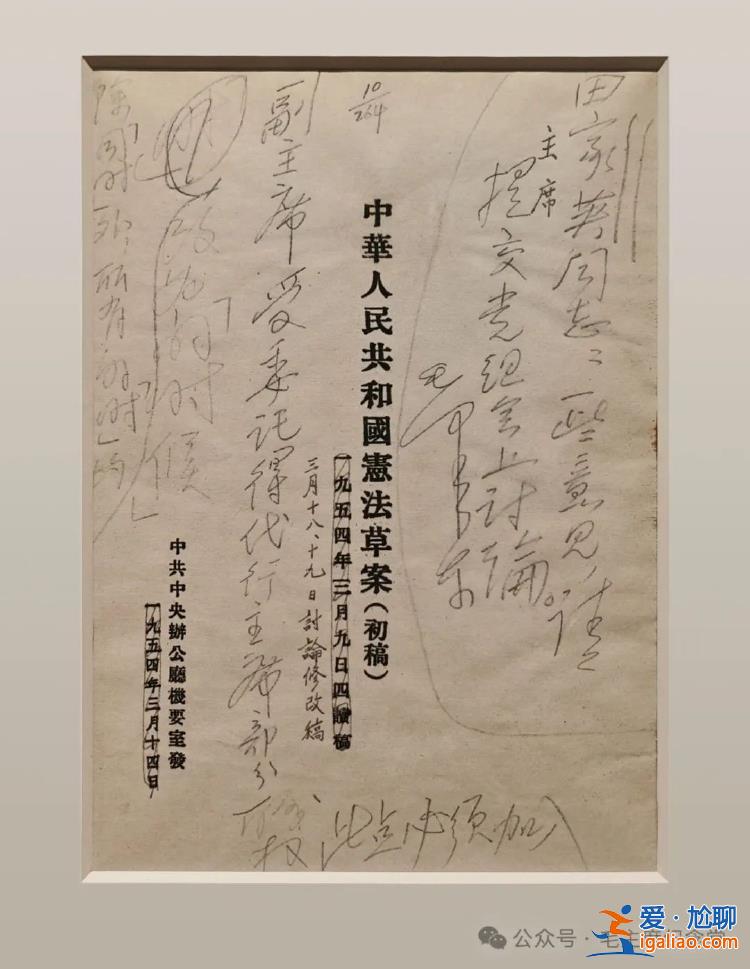 田家英同志：一些意见，请
主席
提交党组会上讨论。
毛泽东
10
264
中華人民共和國憲法草案（初稿）
一九五四年三月九日四讀稿
三月十八、十九日討論修改稿
副主席受委託得代行主席部分
职权
此点必须加入
改为「的时候
「同时」
所有的「时」
中共中央辦公廳機要室發
一九五四年三月十四日
公众号·毛主席纪念堂
爱·尬聊
igaliao.com